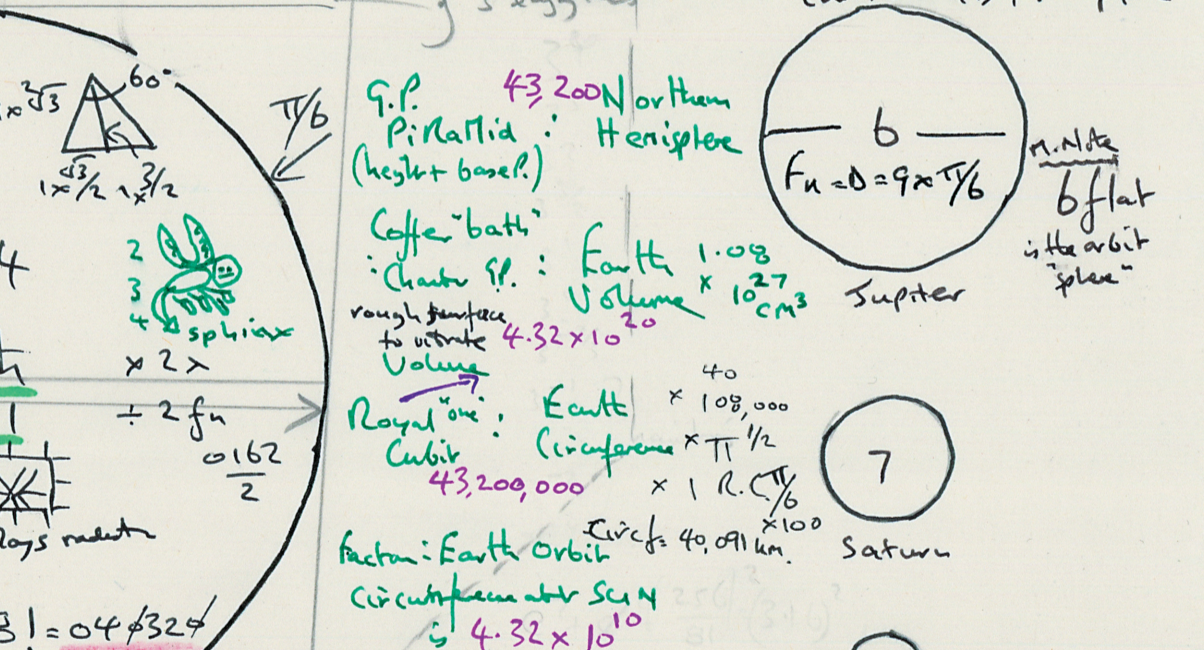 60°
2√3
√3
1x/2 1x 3/2
π/6
2
3
4
sphinx
x 2 λ
÷ 2 fn
0162
2
Rays
31 = 04φ32φ
G.P. 43,200 Northern
PiRaMid : Hemisphere
(height + base P.)
Coffer "bath"
: Earth 1.08
G.P. : Volume x 10²⁷
cm³
rough surface
to vibrate 4.32 x 10²⁰
Volume
40
Royal "one" : Earth x 108,000
Cubit Circumference x π ½
43,200,000 x 1 R.C. π/6
x100
Circf = 40,091 km.
factor : Earth Orbit
Circumference atr SUN
is 4.32 x 10¹⁰
6
Fn = D = 9 x π/6
Jupiter
M. Note
6 flat
is the orbit
"sphere"
7
Saturn